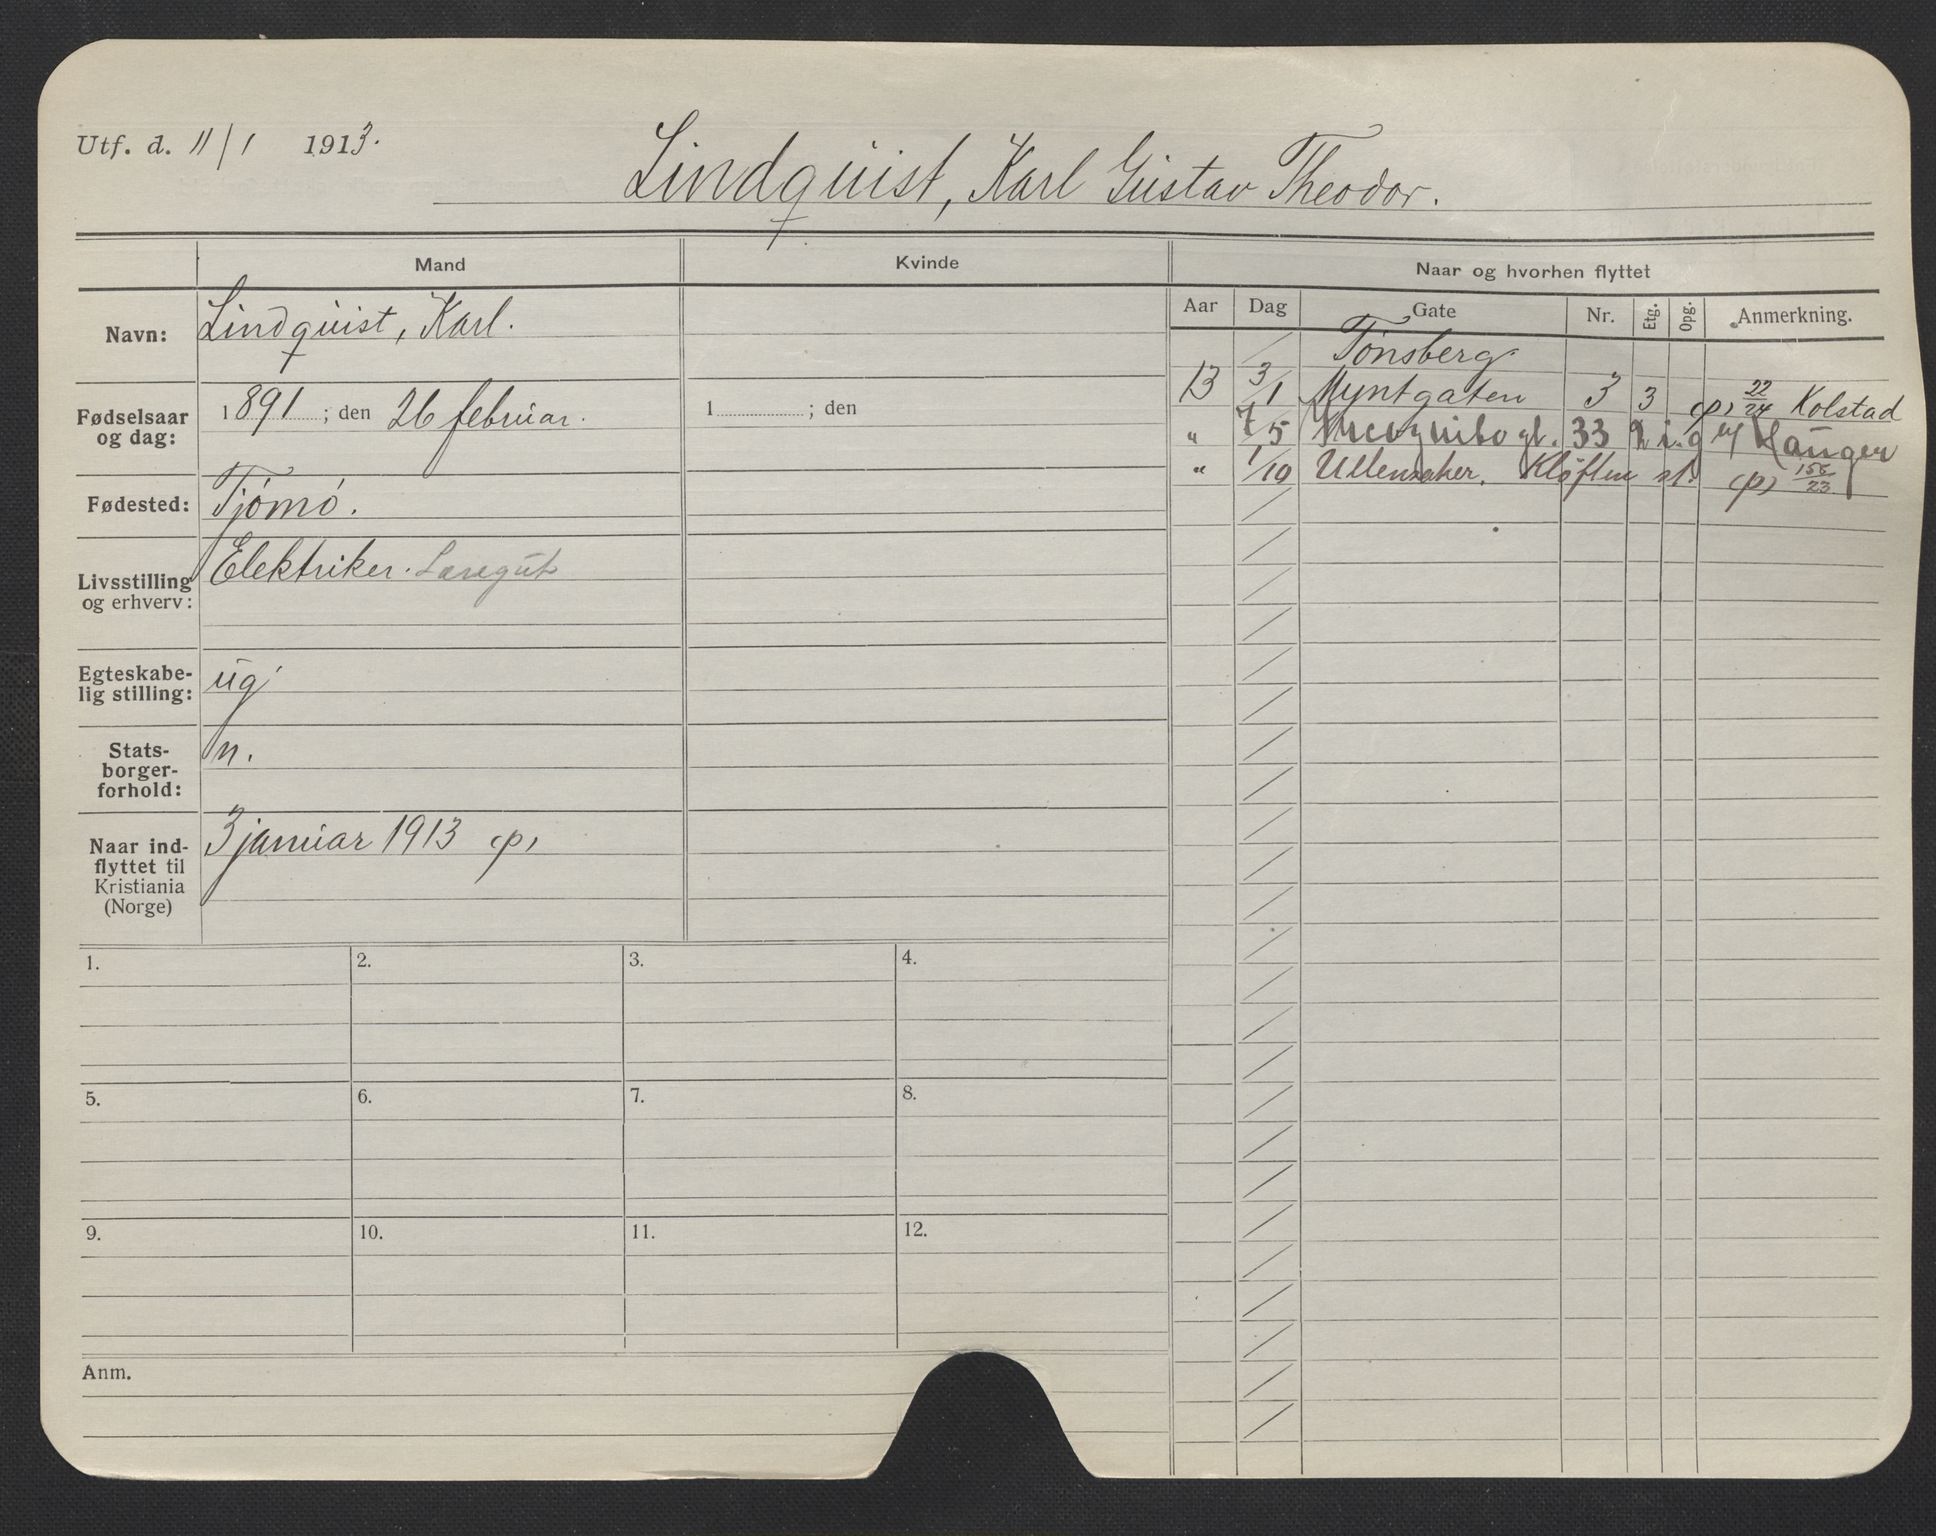 Utf. d. 11/1 1913.
Lindquist, Karl Gustav Theodor.
Mand
Kvinde
Naar og hvorhen flyttet
Navn: Lindquist, Karl.
Fødselsaar og dag: 1891; den 26 februar.
1 ; den
Fødested: Tjømø.
Livsstilling og erhverv: Elektriker. Læregut
Egteskabe-
lig stilling: ug
Stats-
borger-
forhold: n.
Naar ind-
flyttet til
Kristiania
(Norge)
3 januar 1913 (p)
Aar Dag Gate Nr. Etg. Opg. Anmerkning.
Tønsberg
13 3/1 Myntgaten 3 3 (p) 22/24 Kolstad
" 7/5 33 Hauger
" 1/10 Ullensaker. Kløften st. (p) 156/23
1. 2. 3. 4.
5. 6. 7. 8.
9. 10. 11. 12.
Anm.